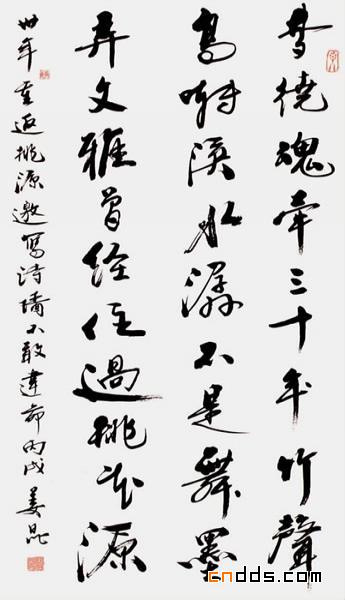 梦绕魂牵三十年竹聲
鳥溪水潺不是舞墨
弄文雅曾经住過桃花源
卅年重返桃源邀寫诗墙不敢違命丙戌姜昆
cndds.com